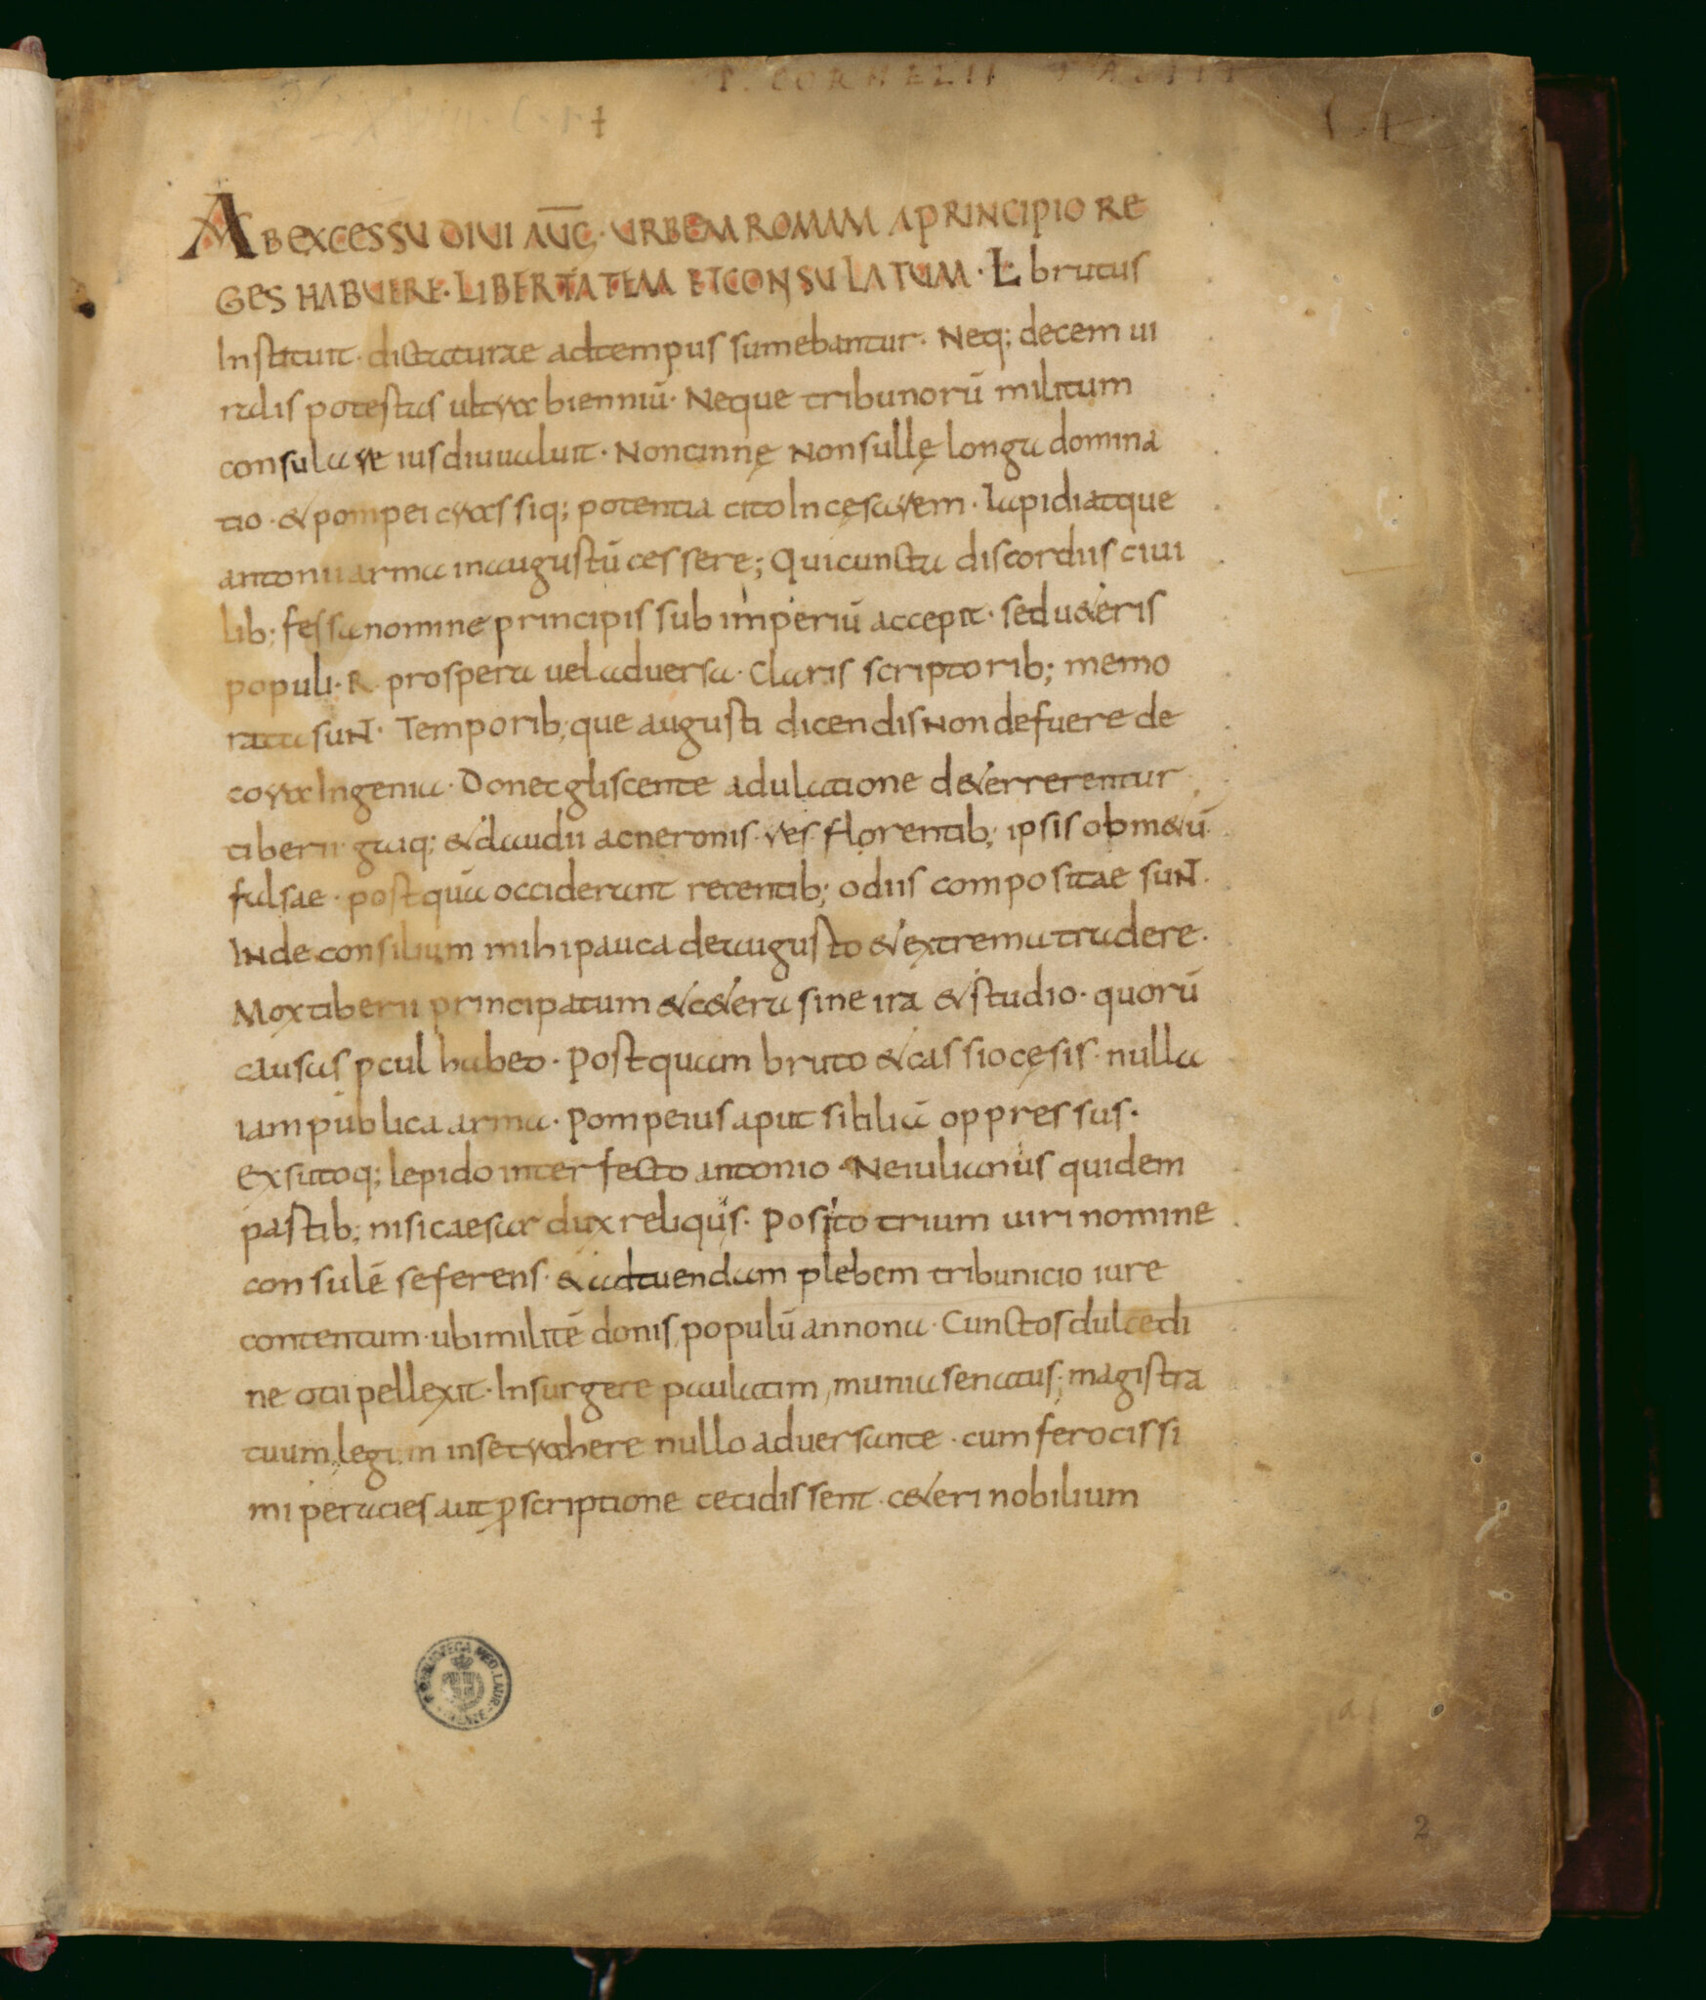 P. CORNELII TACITI
AB EXCESSU DIVI AUG̅· URBEM ROMAM A PRINCIPIO RE
GES HABUERE· LIBERTATEM ET CONSULATUM· L brutus
Instituit· dictaturae adtempus sumebantur· Neq; decem ui
ralis potestas ultra bienniū· Neque tribunorū militum
consulare ius diu ualuit· Non cinnę Non sullę longa domina
tio· & pompei crassiq; potentia cito In cęsarem· Lapidi atque
antonii arma in augustū cessere; Qui cuncta discordiis ciui
lib; fessa nomine principis sub imperiū accepit· sed ueteris
populi· R· prospera uel aduersa· Claris scriptorib; memo
rata suNT· Temporib; que augusti dicendis Non defuere de
cora Ingenia· Donec gliscente adulatione deterrerentur
tiberii gaiq; & claudii ac neronis· res florentib; ipsis ob metū·
falsae· post quā occiderant recentib; odiis compositae suNT·
INde consilium mihi pauca de augusto & extrema tradere·
Mox tiberii principatum & cetera sine ira & studio· quorū
causas pcul habeo· Post quam bruto & cassio cęsis· nulla
iam publica arma· Pompeius aput siciliā oppressus·
Exsutoq; lepido interfecto antonio· Ne iulianus quidem
pastib; nisi caesar dux reliqus· Posito trium uiri nomine
consulē se ferens· & ad tuendam plebem tribunicio iure
contentum· ubi militē donis populū annona· Cunctos dulcedi
ne otii pellexit· Insurgere paulatim, munia senatus; magistra
tuum legum in se trahere nullo aduersante· cum ferocissi
mi per acies aut pscriptione cecidissent· ceteri nobilium
2